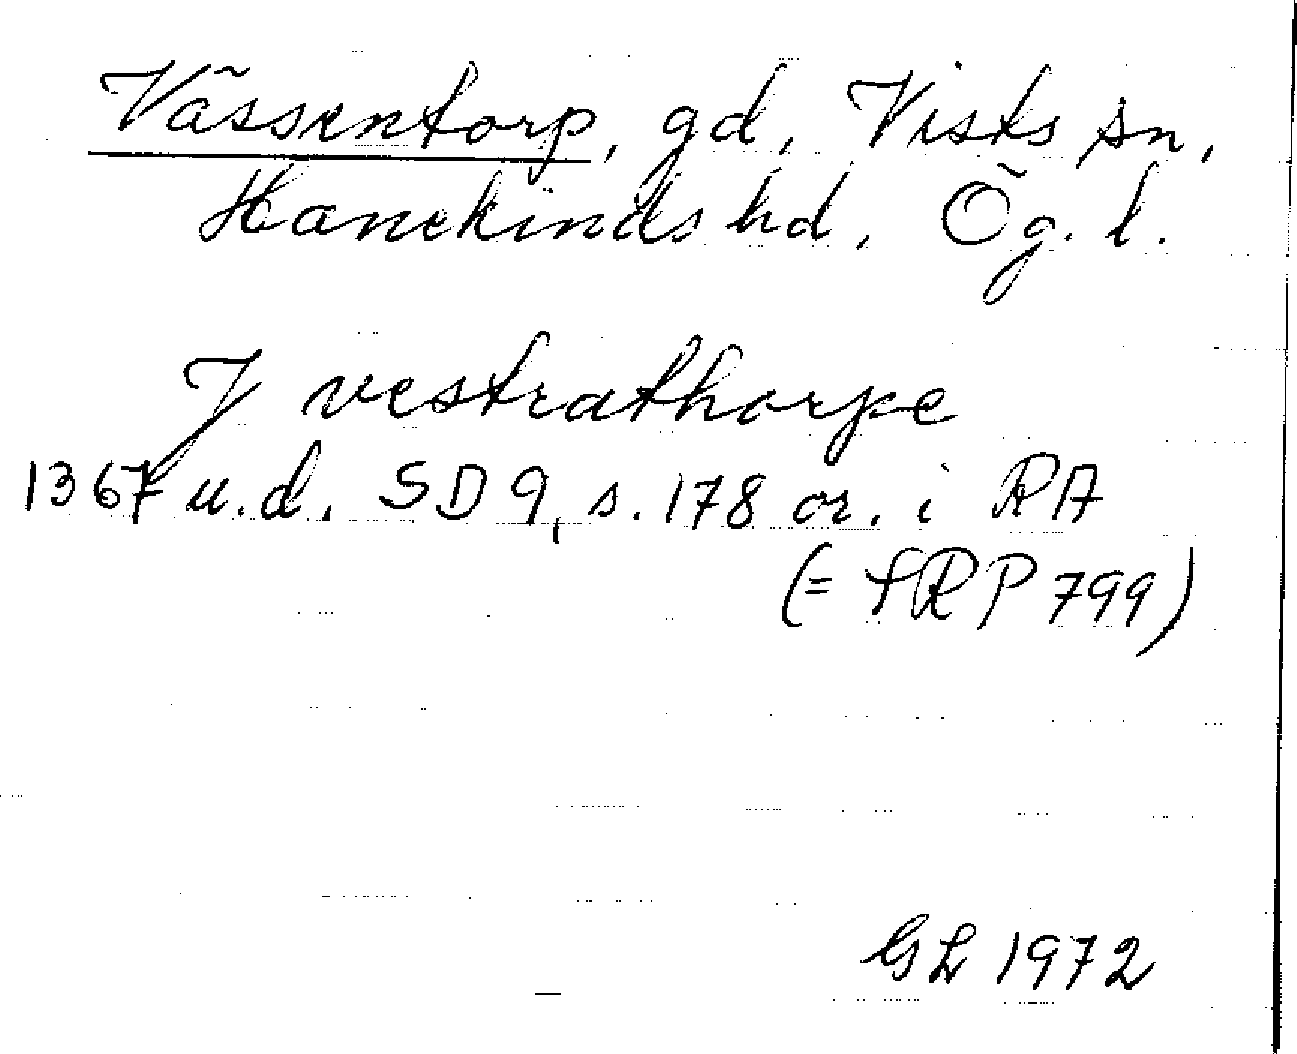 Vässentorp, gd, Vists sn,
Hanekinds hd, Ög. l.
J vestrathorpe
1367 u.d. SD 9, s. 178 or. i RA
(= SRP 799)
GL 1972